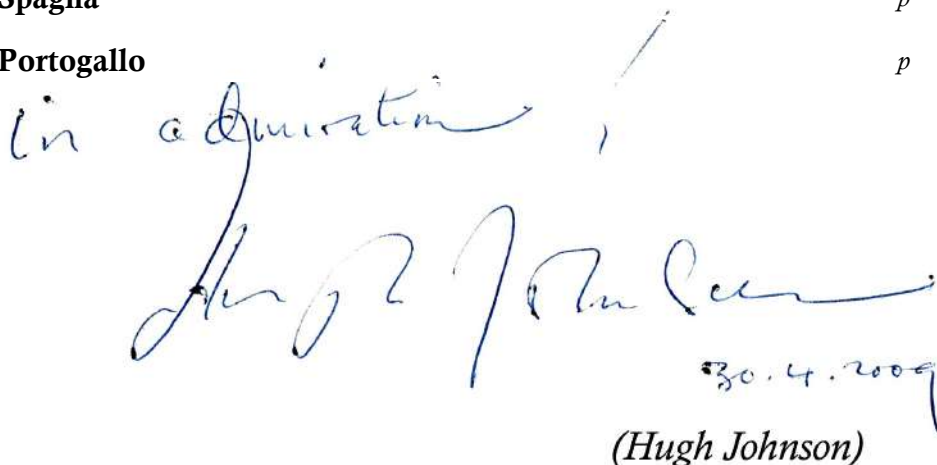 Spaglia p
Portogallo p
In admiration!
Hugh Johnson
30.4.2009
(Hugh Johnson)